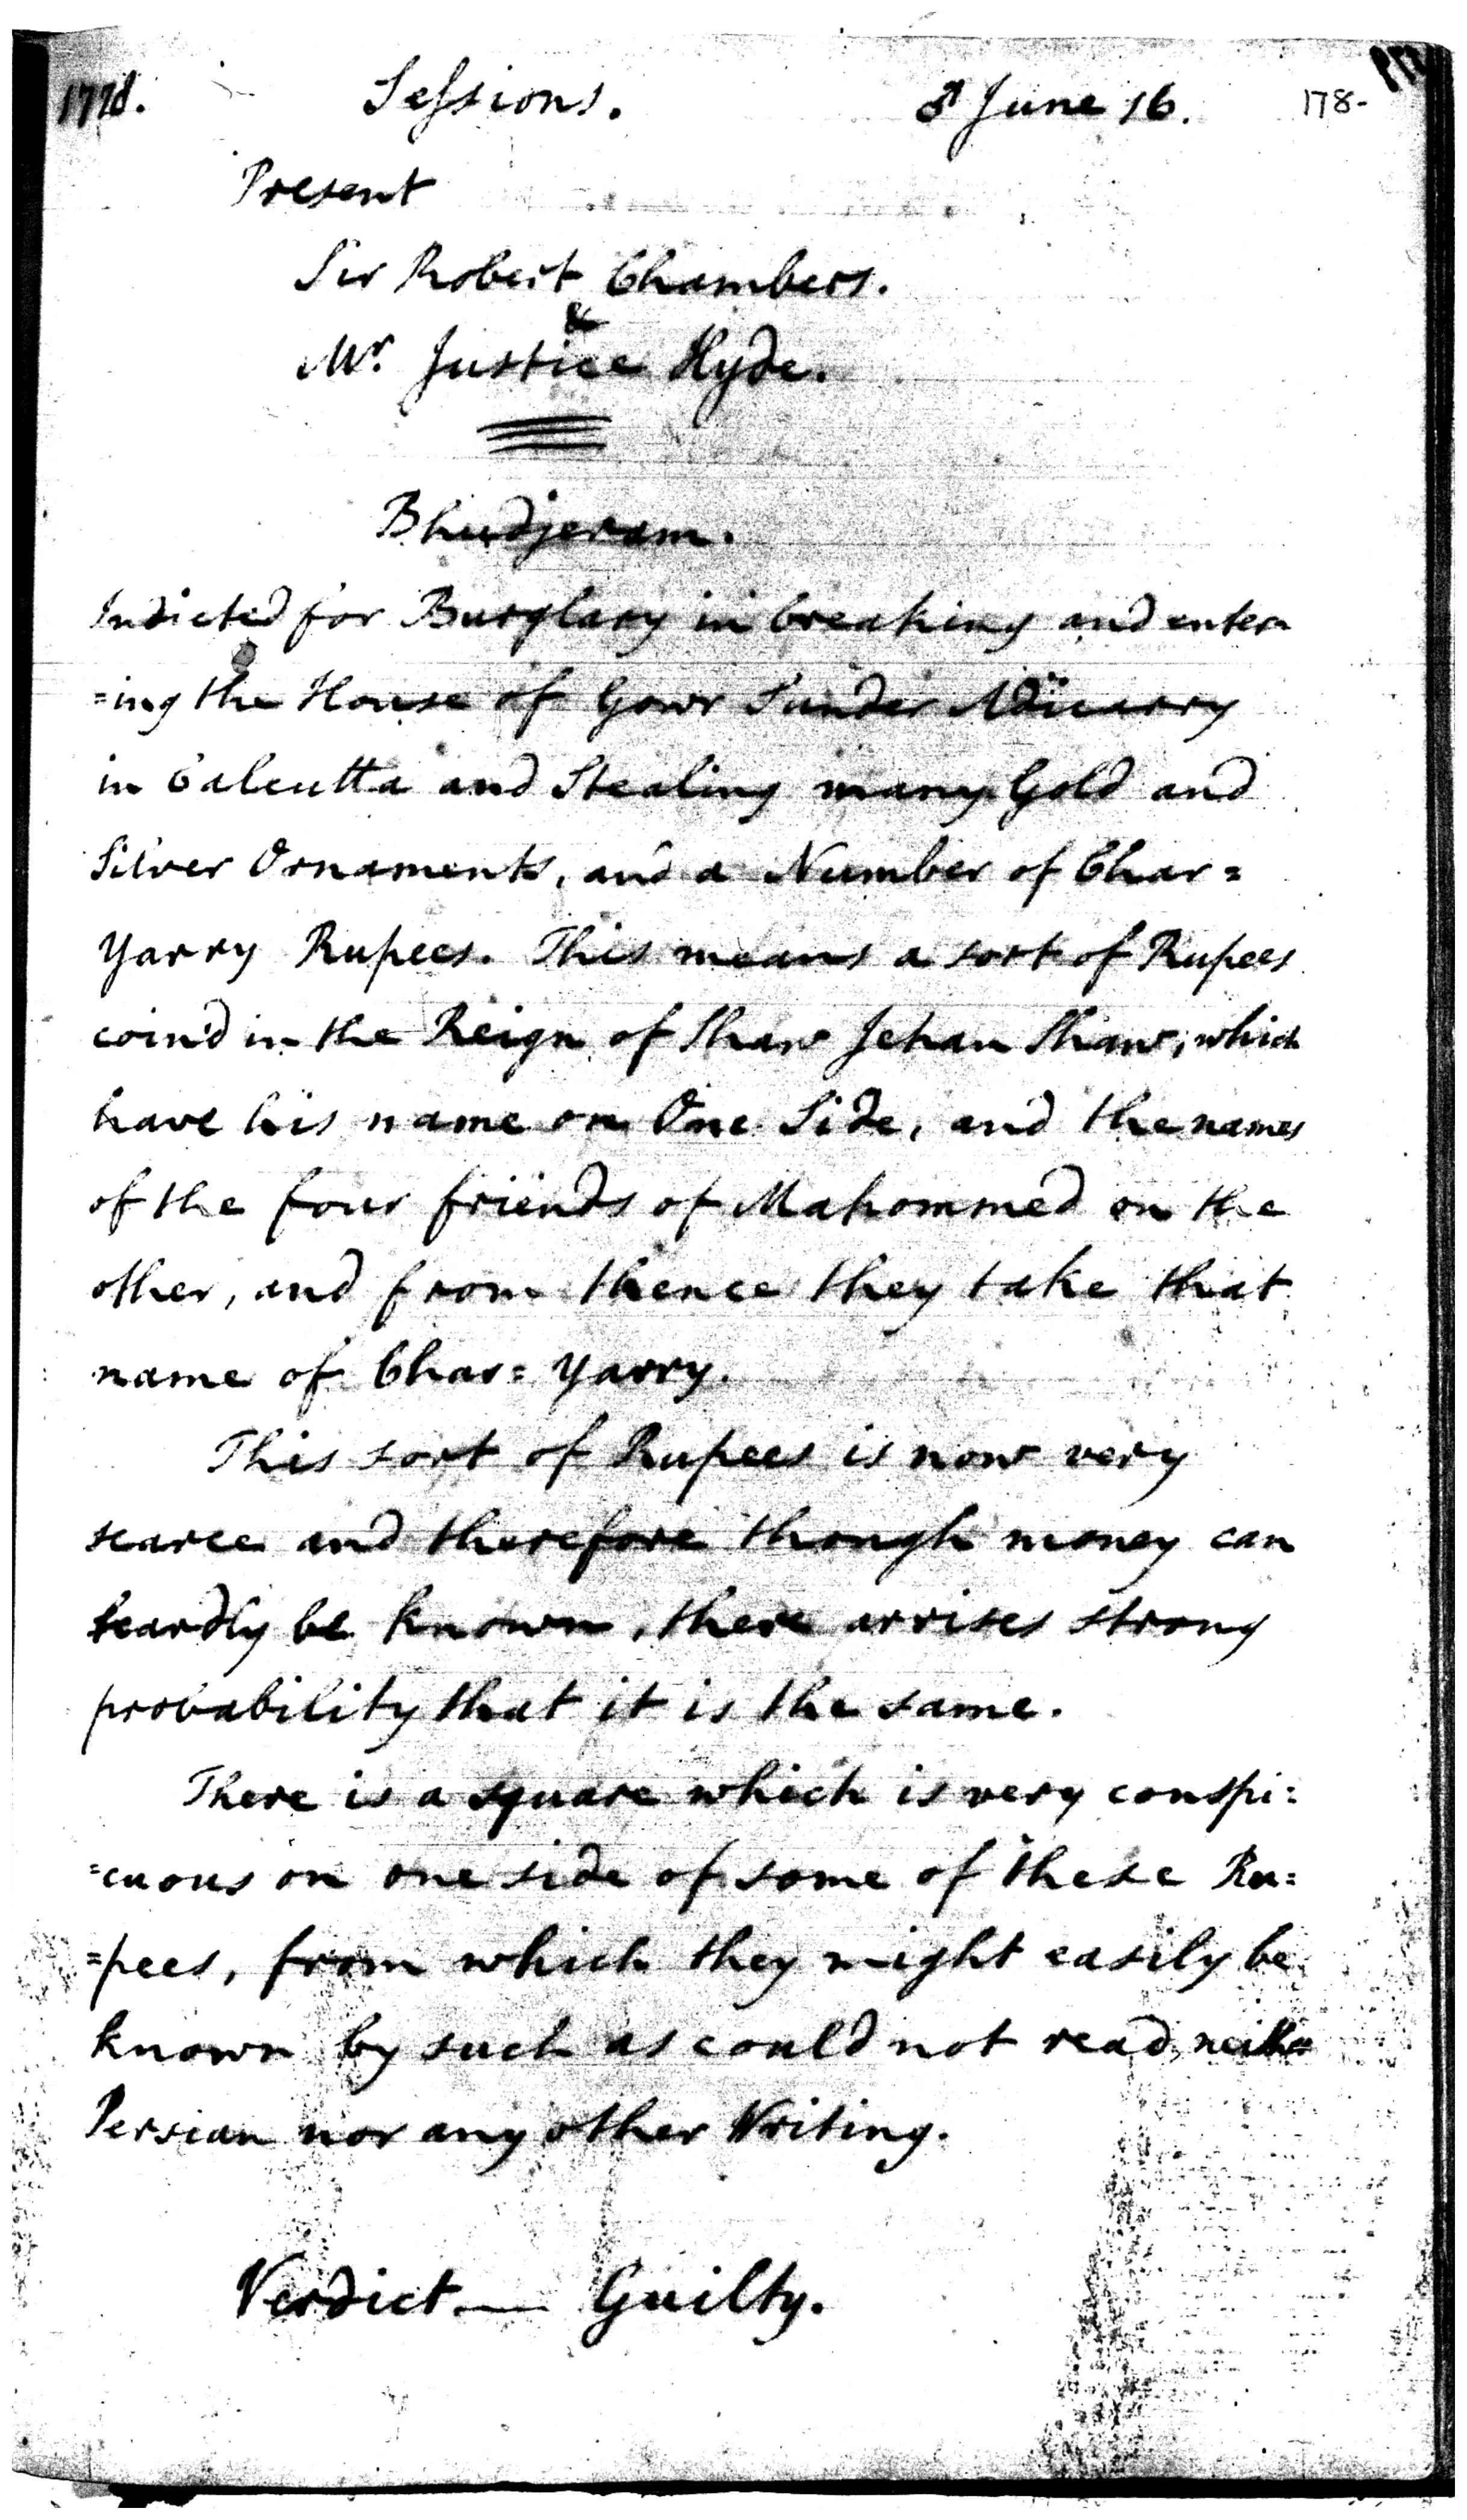 1778. Sessions. ♂ June 16. 178-
Present
Sir Robert Chambers.
&
Mr. Justice Hyde.
Bhudjeram.
Indicted for Burglary in breaking and enter=
=ing the House of Gowr Sunder
in Calcutta and Stealing many Gold and
Silver Ornaments, and a Number of Char=
Yarry Rupees. This means a sort of Rupees
coin'd in the Reign of Shaw Jehan Shaw, which
have his name on One Side, and the names
of the four friends of Mahommed on the
other, and from thence they take that
name of Char= Yarry.
This sort of Rupees is now very
scarce and therefore though money can
hardly be known, there arrises strong
probability that it is the same.
There is a square which is very conspi=
=cuous on one side of some of these Ru=
=pees, from which they might easily be
known by such as could not read, neith=
Persian nor any other Writing.
Verdict — Guilty.